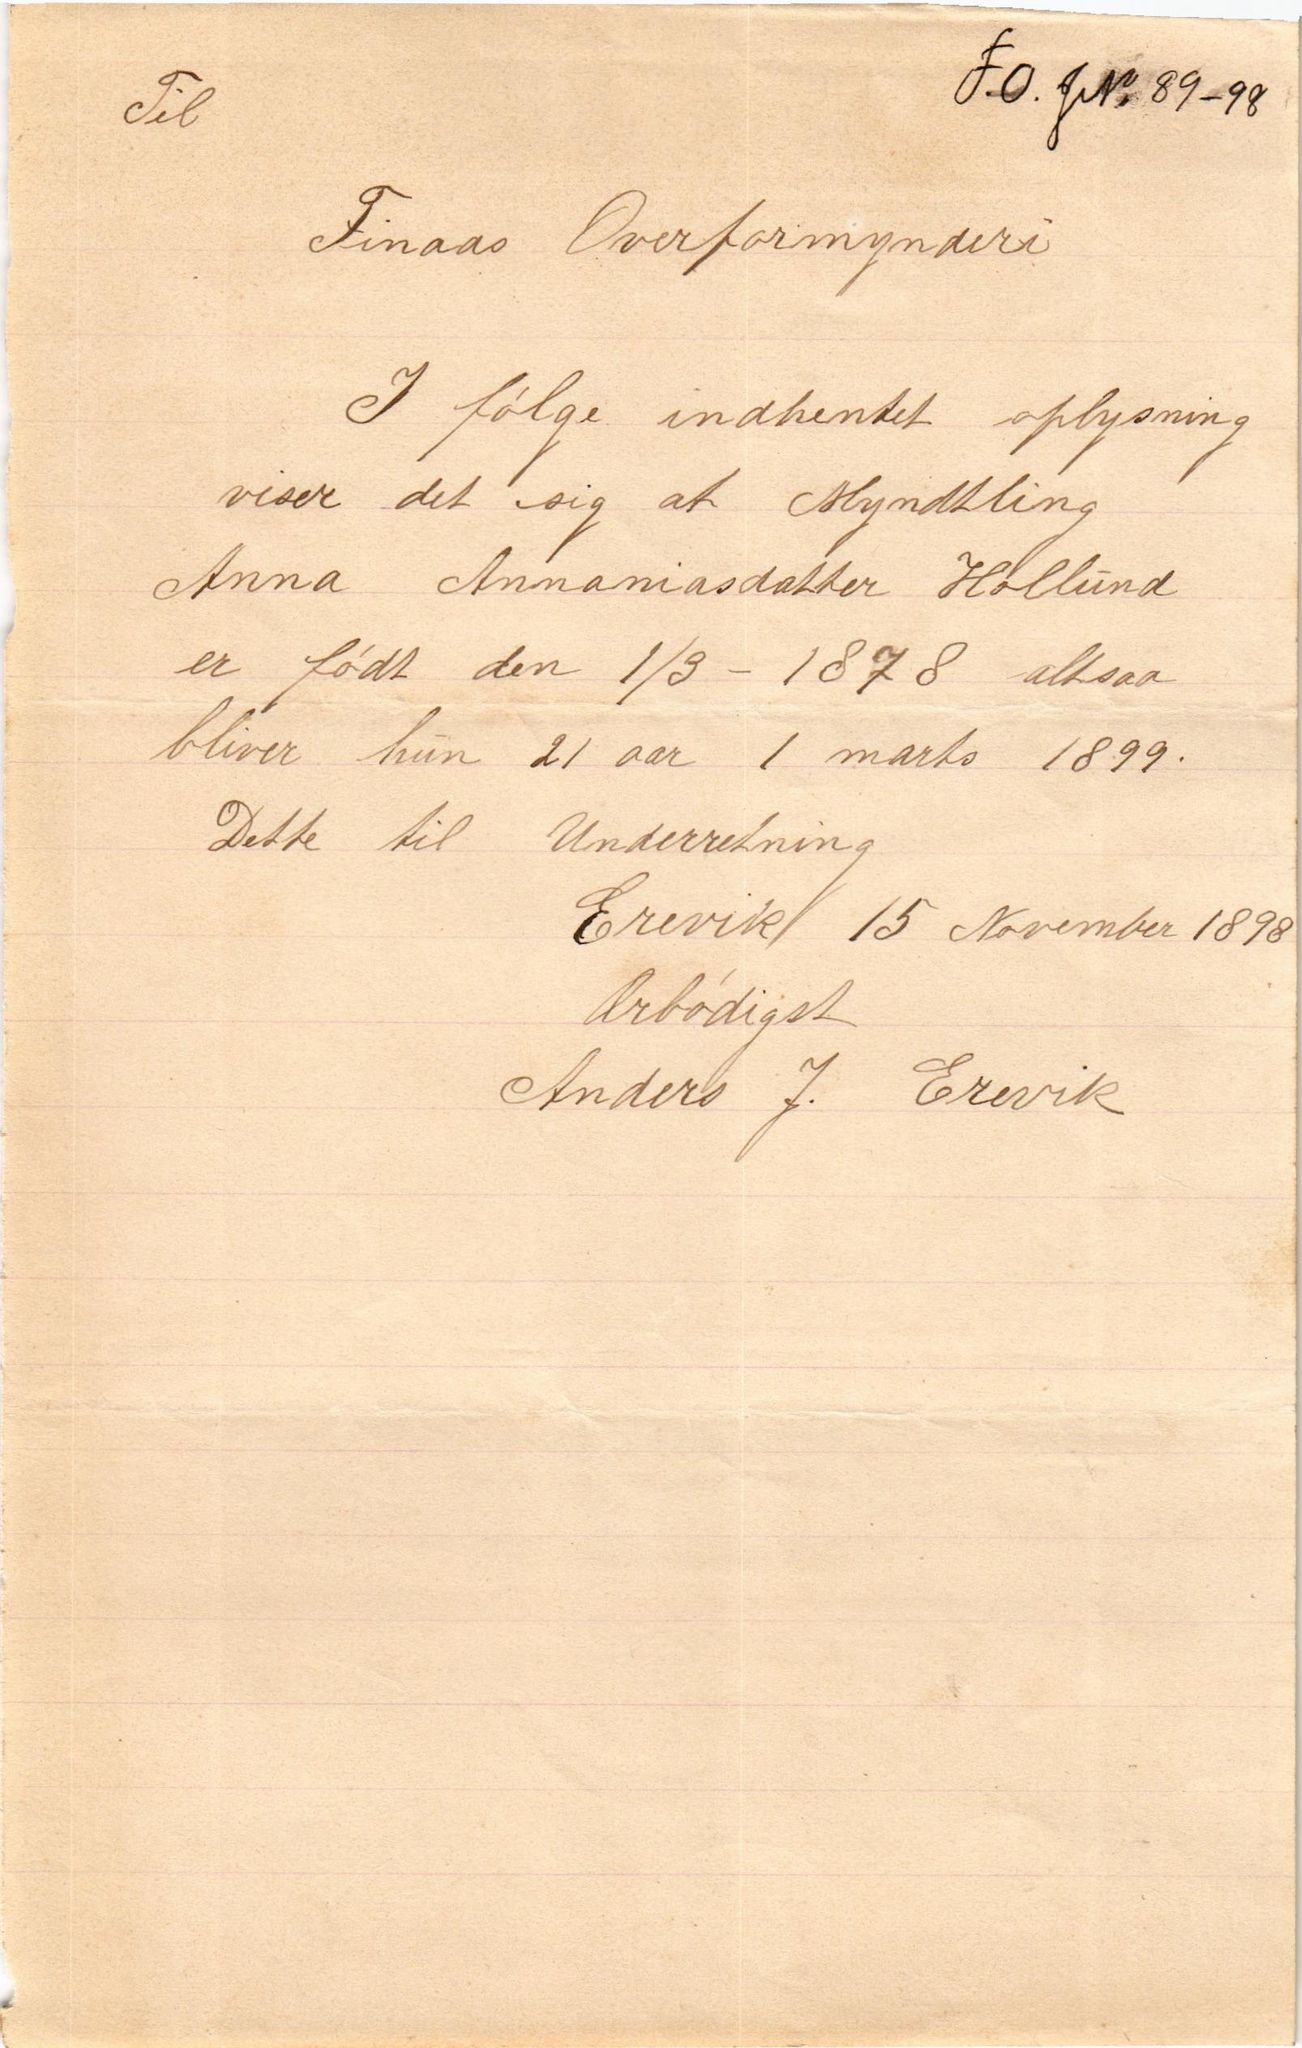 F.O. J№. 89-98
Til
Finaas Overformynderi
I følge indhentet oplysning
viser det sig at Myndtling
Anna Annaniasdatter Hollund
er født den 1/3 - 1878 altsaa
bliver hun 21 aar 1 marts 1899.
Dette til Underretning
Erevik 15 November 1898
Ærbødigst
Anders J. Erevik